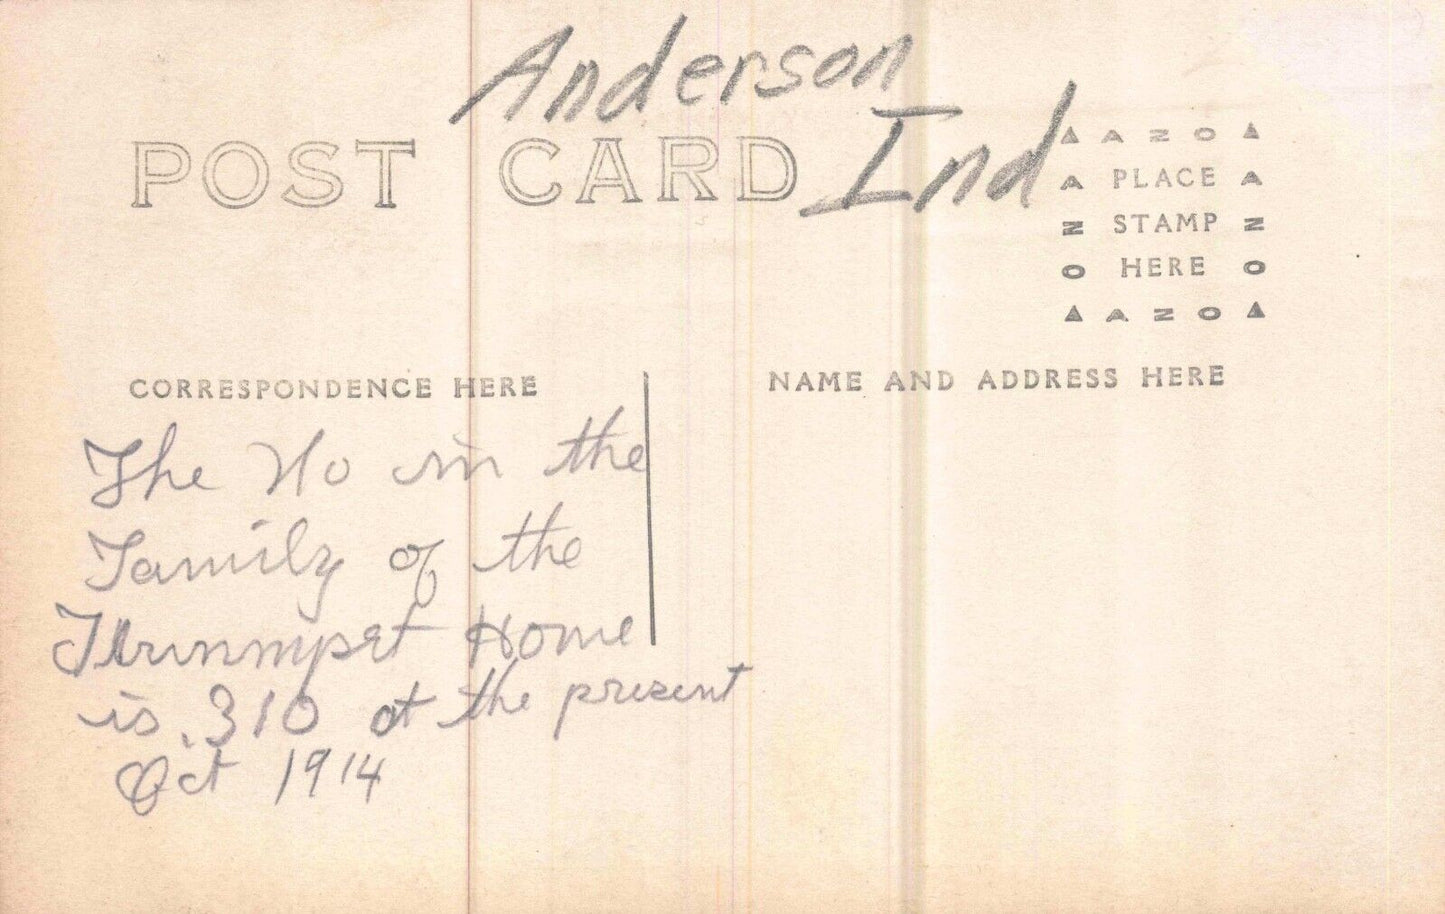 Anderson
Ind
POST CARD
A A Z O A
A PLACE A
Z STAMP Z
O HERE O
A A Z O A
CORRESPONDENCE HERE
NAME AND ADDRESS HERE
The No in the
Family of the
Trumpet Home
is 310 at the present
Oct 1914